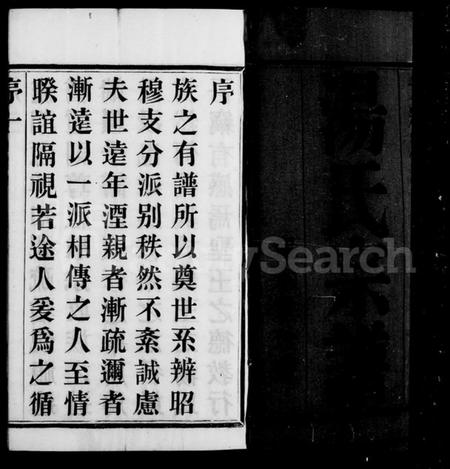 序
族之有譜所以奠世系辨昭
穆支分派别秩然不紊誠慮
夫世遠年湮親者漸疏邇者
漸遠以一派相傳之人至情
睽誼隔視若途人爰爲之循
序一
楊氏宗譜
MySearch